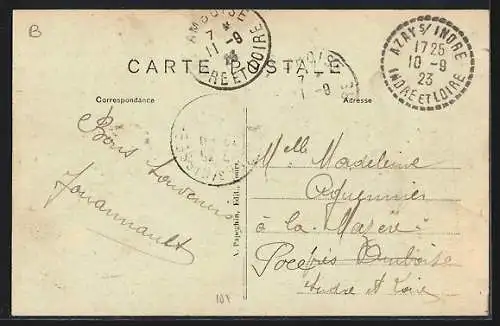 B
AMBOISE
7 *
11-9
23
INDRE ET LOIRE
AZAY S/ INDRE
17 25
10-9
23
INDRE ET LOIRE
CARTE POSTALE
Correspondance
Adresse
Bons
Souvenirs
Jouannault
A. Papeghin, Edit., Tours.
Melle Madeleine
à la
Pocé près Amboise
Indre et Loire
101